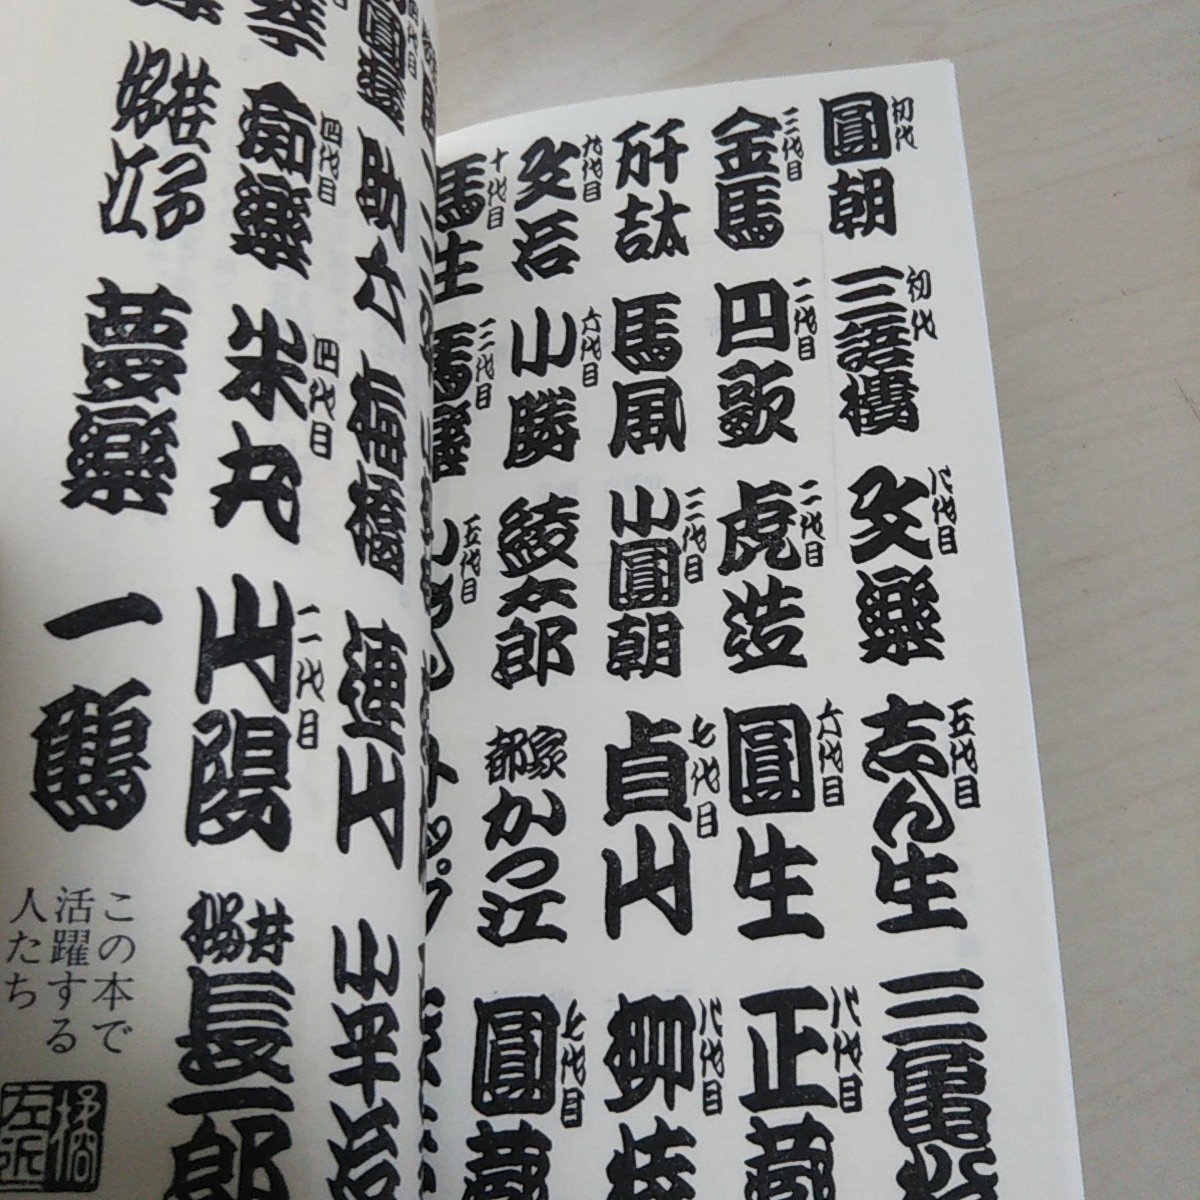 初代
圓朝
初代
三語樓
八代目
文樂
五代目
志ん生
三亀松
三代目
金馬
二代目
円歌
二代目
虎造
六代目
圓生
八代目
正蔵
馬風
三代目
小圓朝
七代目
貞山
八代目
柳枝
九代目
文治
六代目
小勝
綾太郎
都家
かつ江
七代目
圓蔵
十代目
馬生
三代目
馬樂
五代目
助六
梅橋
連山
小半治
四代目
痴樂
四代目
米丸
二代目
山陽
桜井
長一郎
夢樂
一鶴
この本で
活躍する
人たち